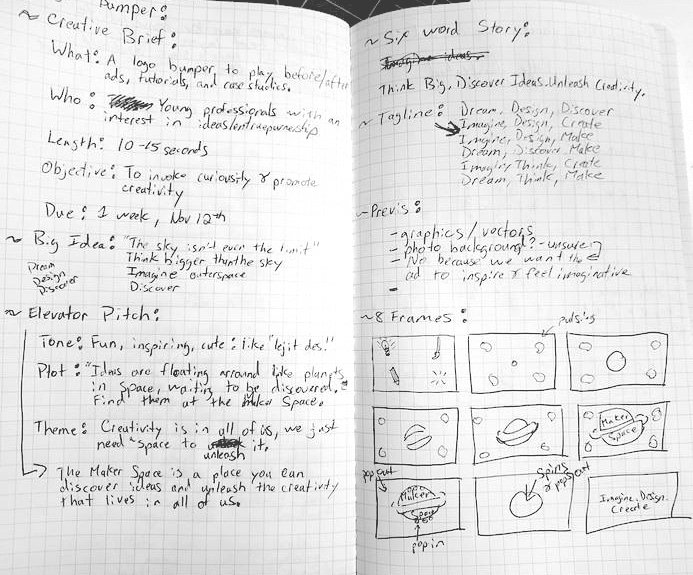 Bumper:
~ Creative Brief:
What: A logo bumper to play before/after
ads, tutorials, and case studies.
Who: Young professionals with an
interest in ideas/entrepenuership
Length: 10-15 seconds
Objective: To invoke curiousity & promote
creativity
Due: 1 week, Nov 12th
~ Big Idea: "The sky isn't even the limit"
Think bigger than the sky
Imagine outerspace
Discover
Dream
Design
Discover
~ Elevator Pitch:
Tone: Fun, inspiring, cute: like "lejit des!"
Plot: "Ideas are floating around like planets
in space, waiting to be discovered."
Find them at the Maker Space.
Theme: Creativity is in all of us, we just
need "space to unleash it.
The Maker Space is a place you can
discover ideas and unleash the creativity
that lives in all of us.
~ Six word Story:
Imagine ideas.
Think Big. Discover Ideas. Unleash Creativity.
~ Tagline: Dream, Design, Discover
Imagine, Design, Create
Imagine, Design, Make
Dream, Discover, Make
Imagine, Think, Create
Dream, Think, Make
~ Previs:
- graphics/vectors
- photo background? - unsure
- No because we want the
ad to inspire & feel imaginative
-
~ 8 Frames:
pulsing
Maker
Space
pop out
Maker
Space
pop in
Spins
& pops out
Imagine. Design.
Create